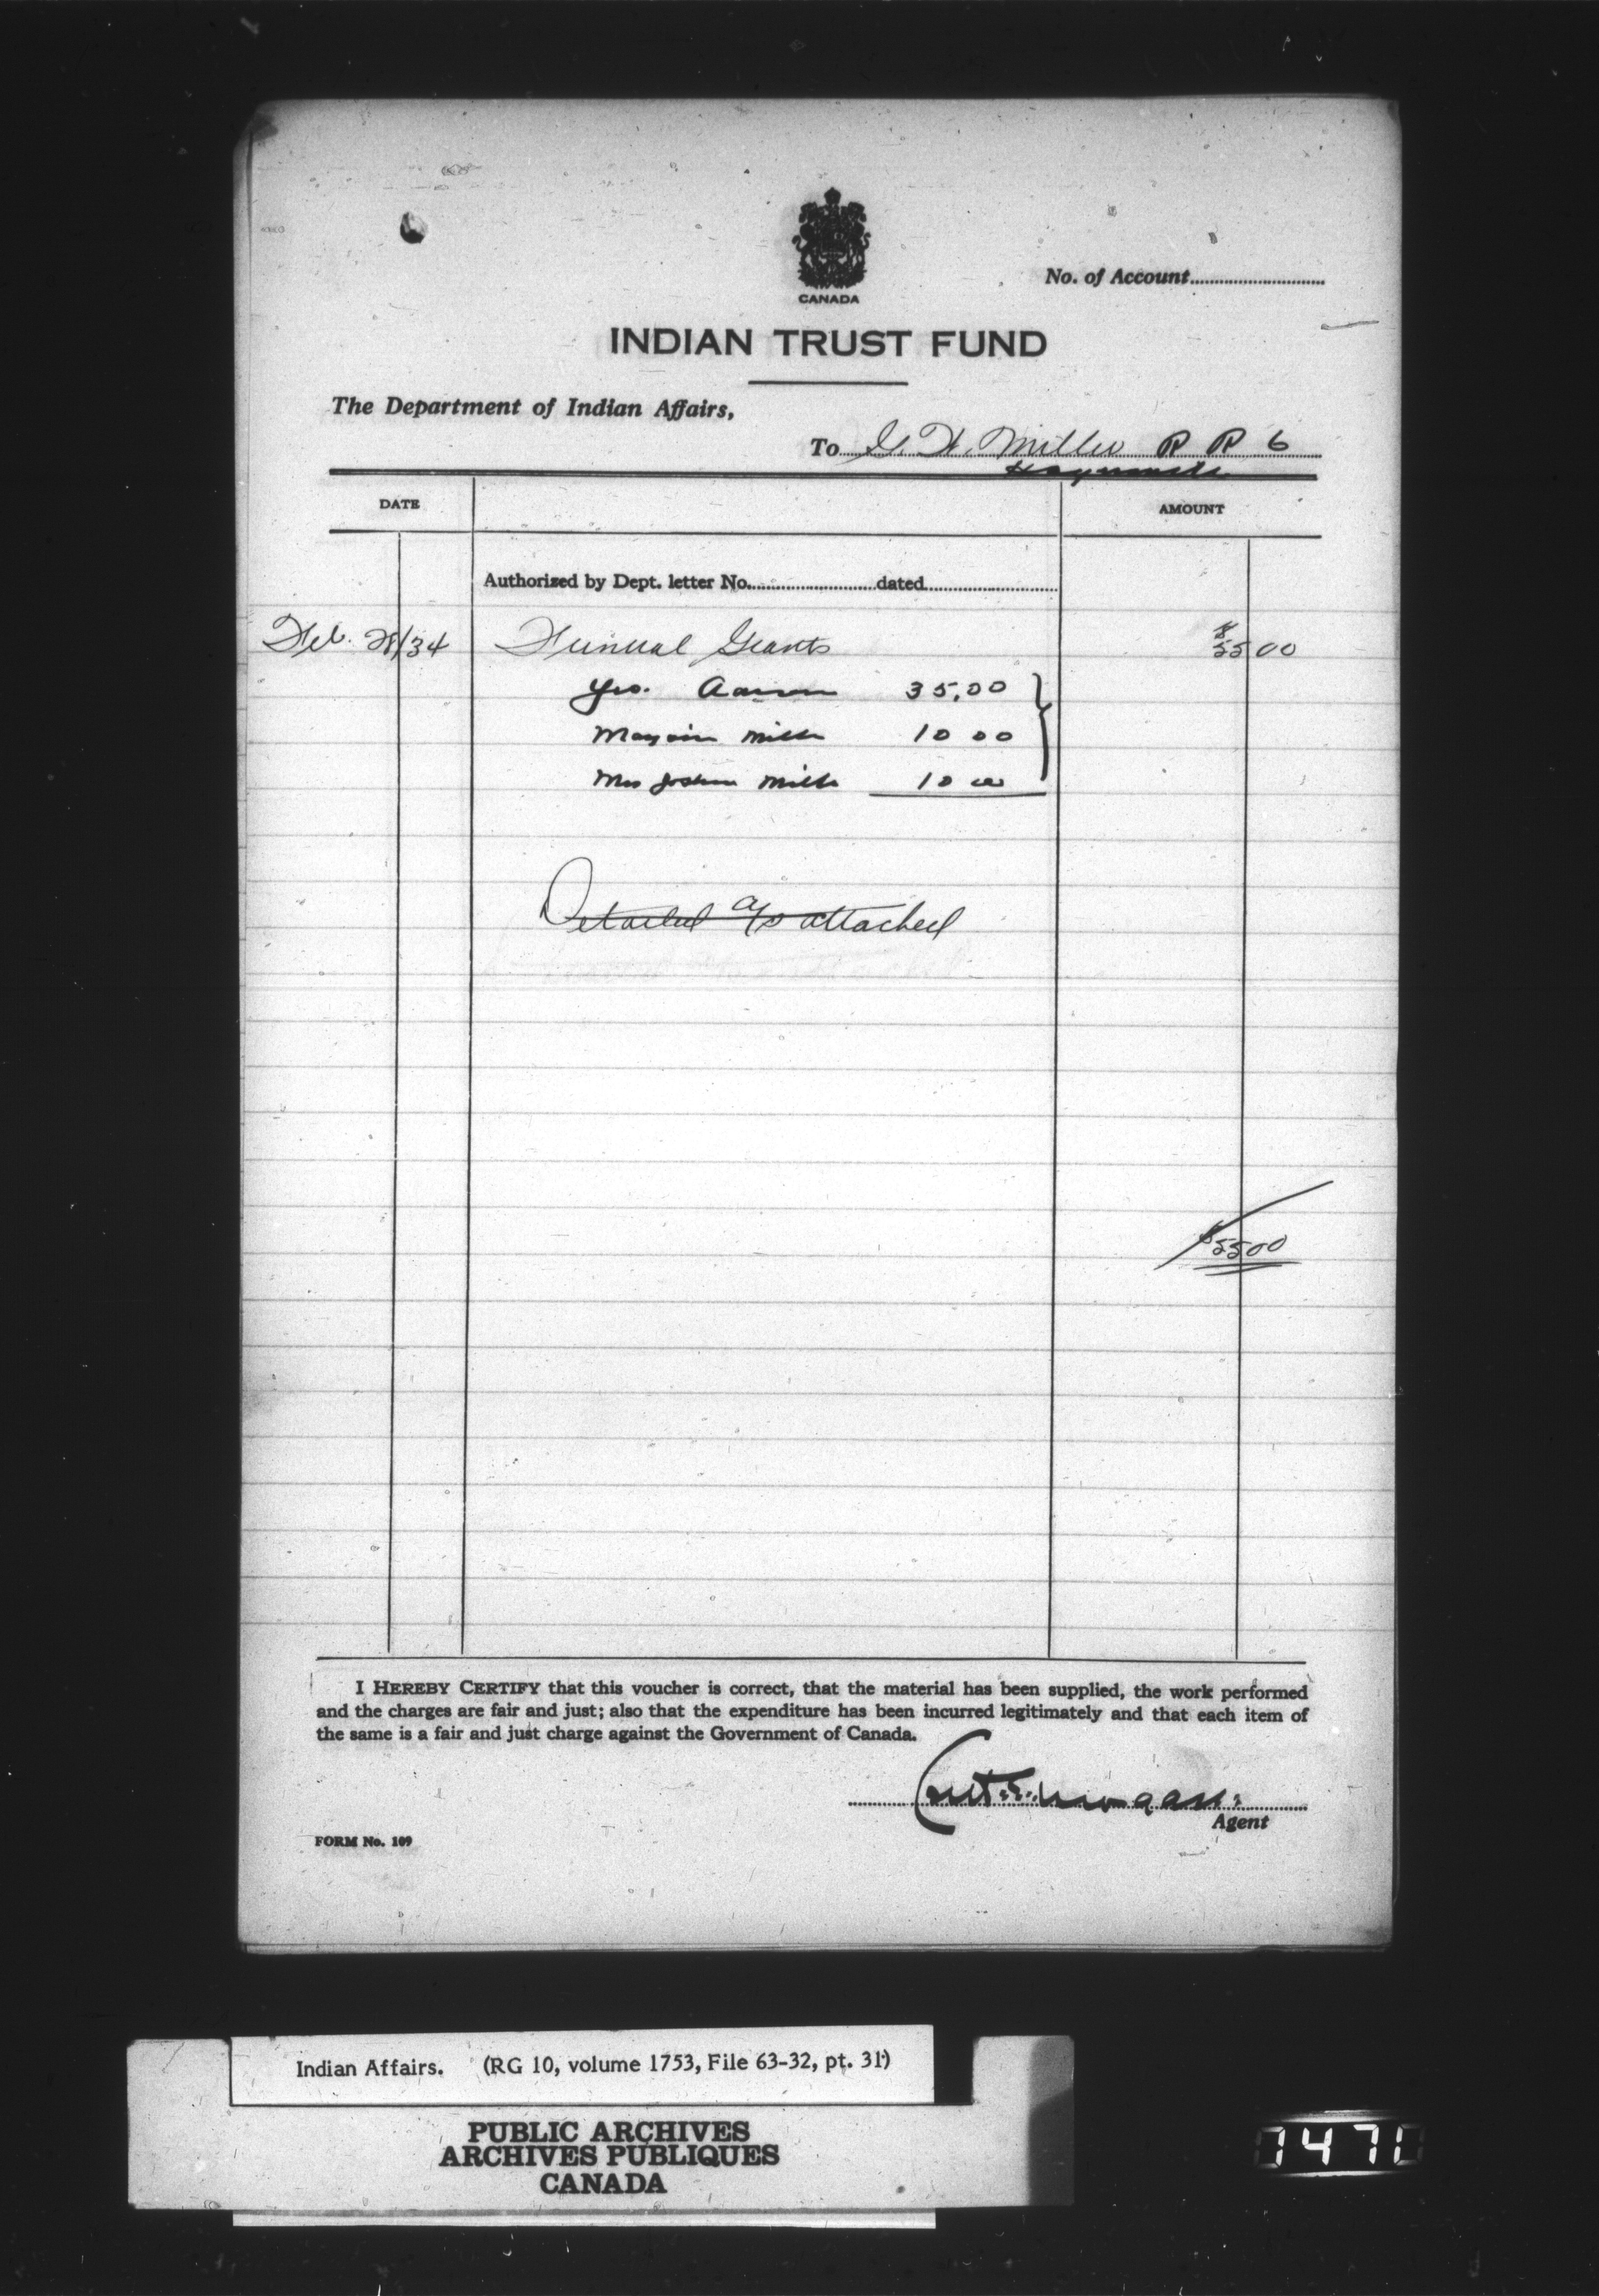 CANADA
No. of Account
INDIAN TRUST FUND
The Department of Indian Affairs,
To G. H. Miller R R 6
Hagersville
DATE
AMOUNT
Authorized by Dept. letter No. dated
Feb. 28/34 Funeral Grants $55 00
Geo. Aaron 35.00
10 00
Mrs Joshua 10 00
Detailed a/c attached
$55 00
I HEREBY CERTIFY that this voucher is correct, that the material has been supplied, the work performed
and the charges are fair and just; also that the expenditure has been incurred legitimately and that each item of
the same is a fair and just charge against the Government of Canada.
Morgan
Agent
FORM No. 109
Indian Affairs. (RG 10, volume 1753, File 63-32, pt. 31)
PUBLIC ARCHIVES
ARCHIVES PUBLIQUES
CANADA